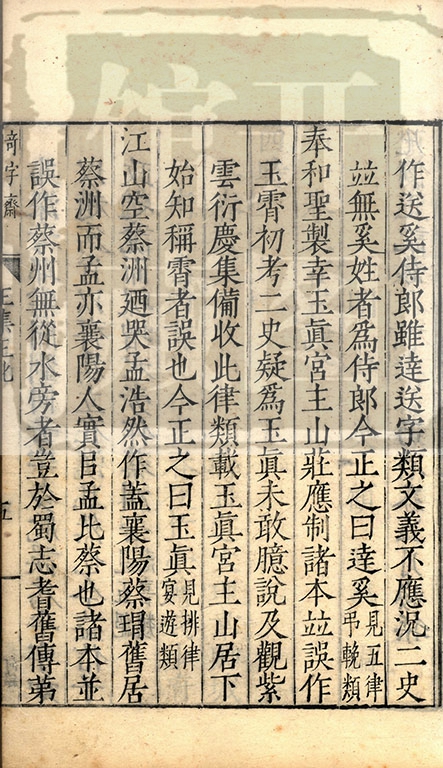 作送奚侍郎雖達送字類文義不應況二史
竝無奚姓者爲侍郎今正之曰逹奚見五律弔輓類
奉和聖製幸玉眞宮主山莊應制諸本竝誤作
玉霄初考二史疑爲玉眞未敢臆說及觀紫
雲衍慶集備收此律類載玉眞宮主山居下
始知稱霄者誤也今正之曰玉眞見排律宴遊類
江山空蔡洲迺哭孟浩然作蓋襄陽蔡瑁舊居
蔡洲而孟亦襄陽人實㠯孟比蔡也諸本並
誤作蔡州無從水旁者豈於蜀志耆舊傳第
奇字齋
五